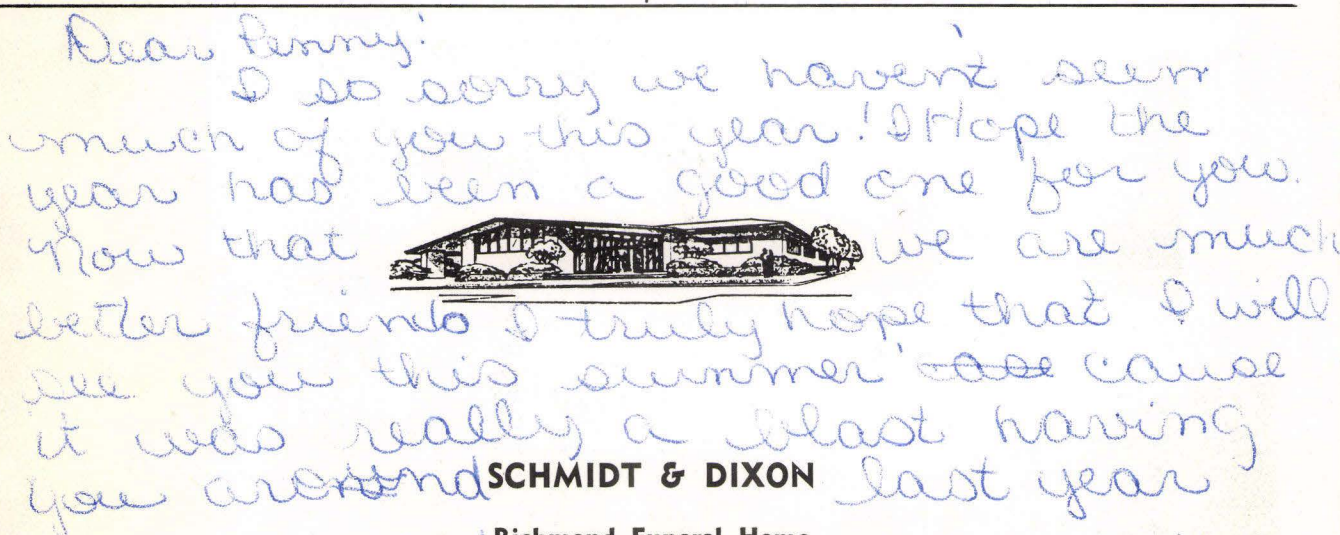 Dear Penny!
I so sorry we haven't seen
much of you this year! I Hope the
year has been a good one for you.
Now that we are much
better friends I truly hope that I will
see you this summer 'cause
it was really a blast having
you around last year
SCHMIDT & DIXON
Richmond Funeral Home